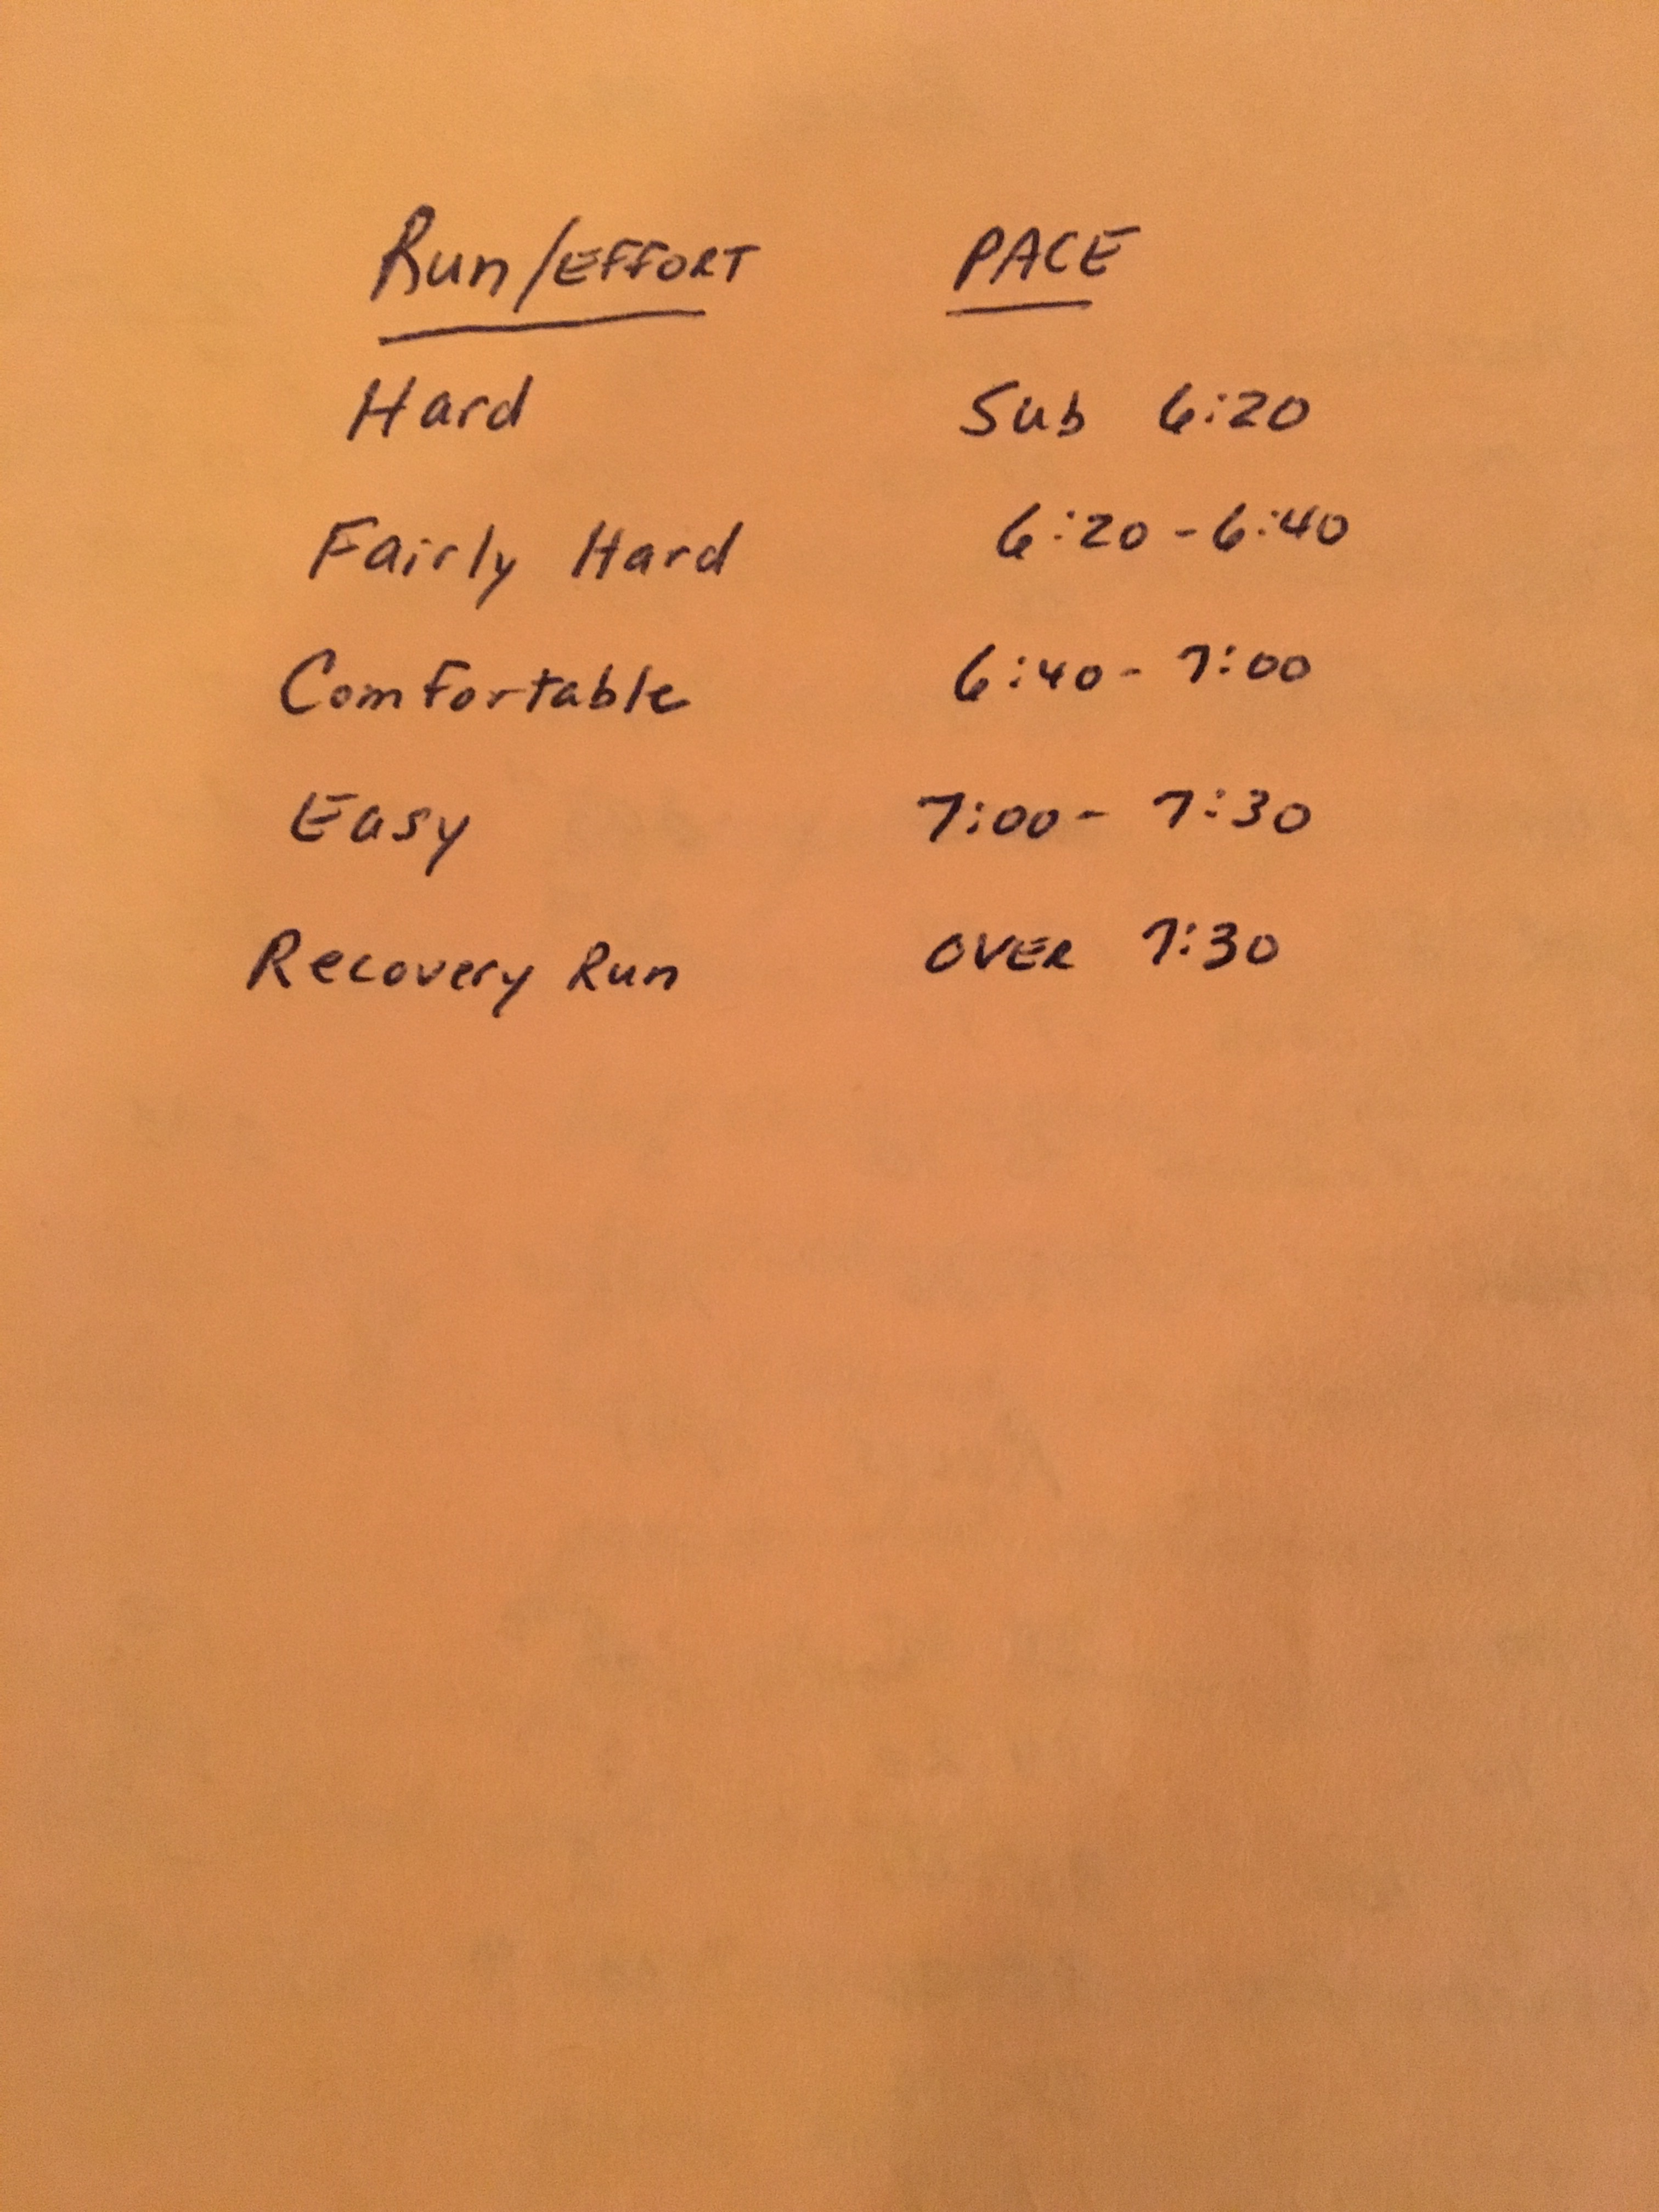 Run/EFFORT PACE
Hard Sub 6:20
Fairly Hard 6:20-6:40
Comfortable 6:40-7:00
Easy 7:00-7:30
Recovery Run OVER 7:30